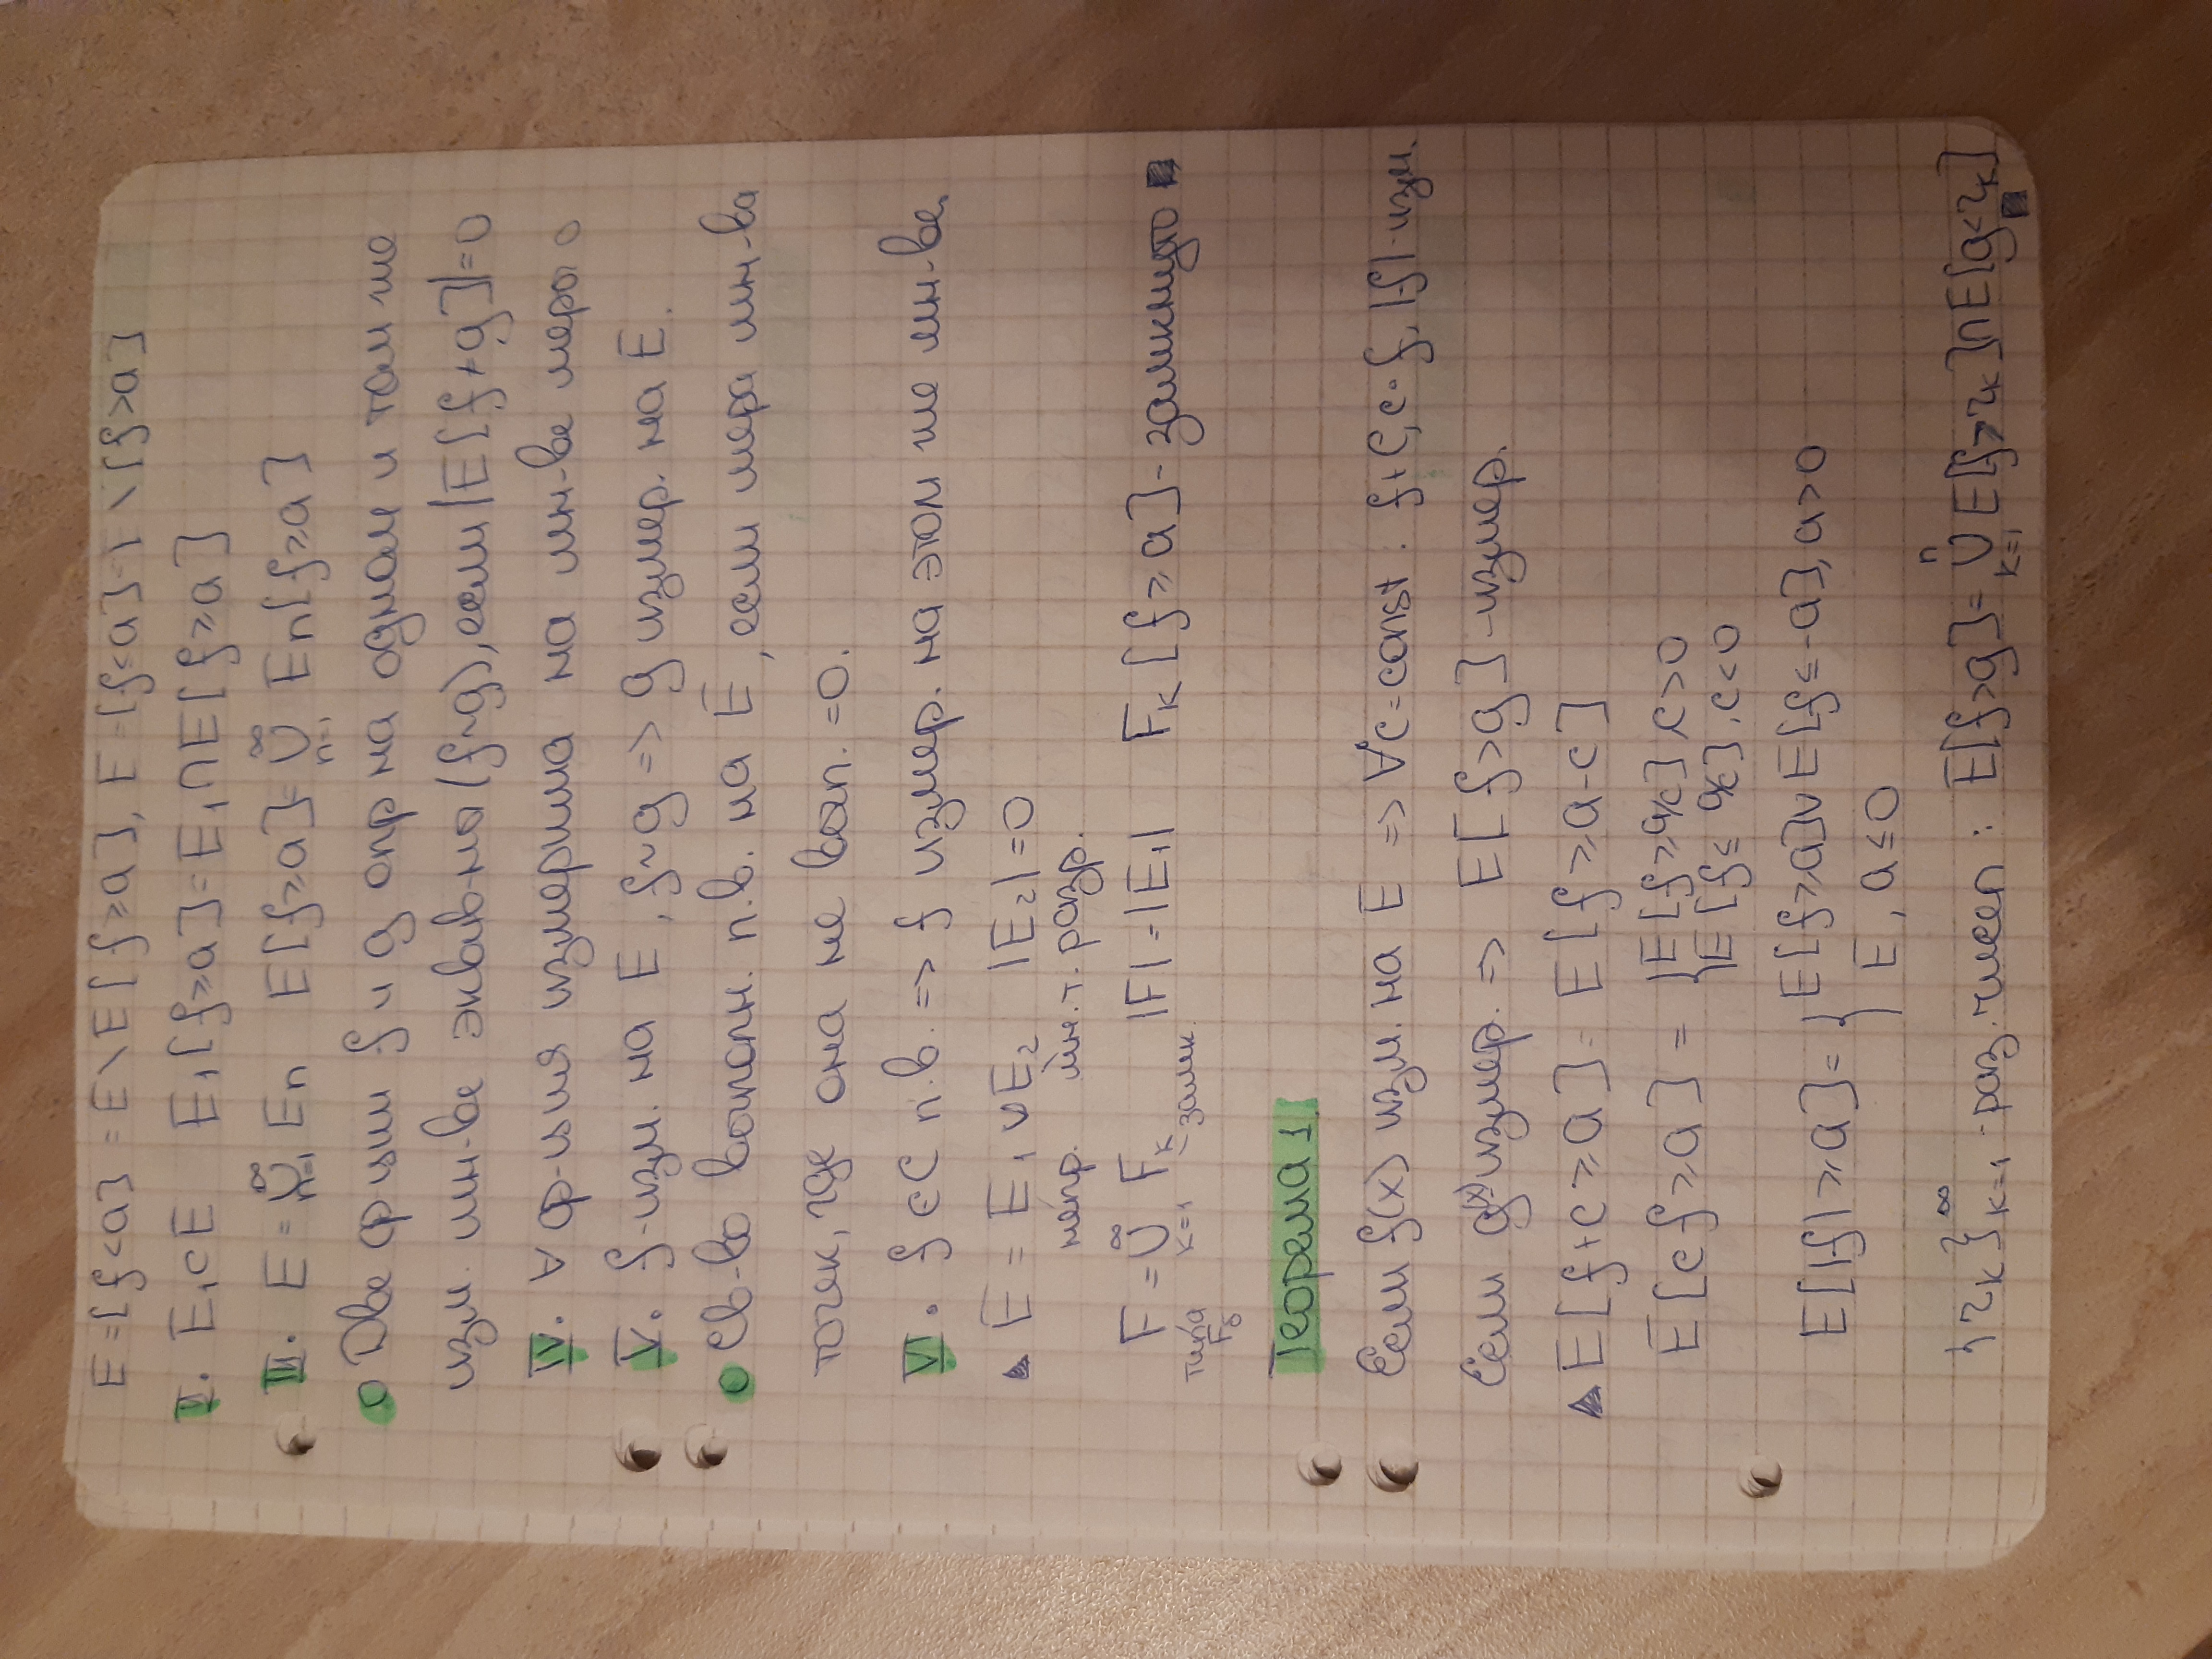 E=[f<a] = E\E[f≥a], E=[f≤a]=E\[f>a]
II. E₁⊂E E₁[f≥a]=E₁∩E[f≥a]
III. E=⋃ₙ₌₁^∞ Eₙ E[f≥a]=⋃ₙ₌₁^∞ Eₙ[f≥a]
Две ф-ции f и g опр на одном и том же
изм. мн-ве эквив-ны (f~g), если |E[f≠g]|=0
IV. ∀ ф-ция измерима на мн-ве меры 0
V. f-изм. на E, f~g => g измер. на E.
Св-во выполн. п.в. на E, если мера мн-ва
точек, где она не вып. =0.
VI. f∈C п.в. => f измер. на этом же мн-ве.
▲ E = E₁∪E₂ |E₂|=0
непр. мн. т. разр.
F=⋃ₖ₌₁^∞ Fₖ |F|=|E₁| Fₖ[f≥a]-замкнуто ■
типа Fσ замк.
Теорема 1
Если f(x) изм. на E => ∀c=const : f+c, c·f, |f|-изм.
Если g(x) измер. => E[f>g]-измер.
▲ E[f+c≥a]= E[f≥a-c]
E[cf≥a] = {E[f≥a/c], c>0
{E[f≤ a/c], c<0
E[|f|≥a]={E[f≥a]∪E[f≤-a], a>0
{E, a≤0
{rₖ}ₖ₌₁^∞ - рац. чисел : E[f>g]=⋃ₖ₌₁ⁿ E[f>rₖ]∩E[g<rₖ] ■